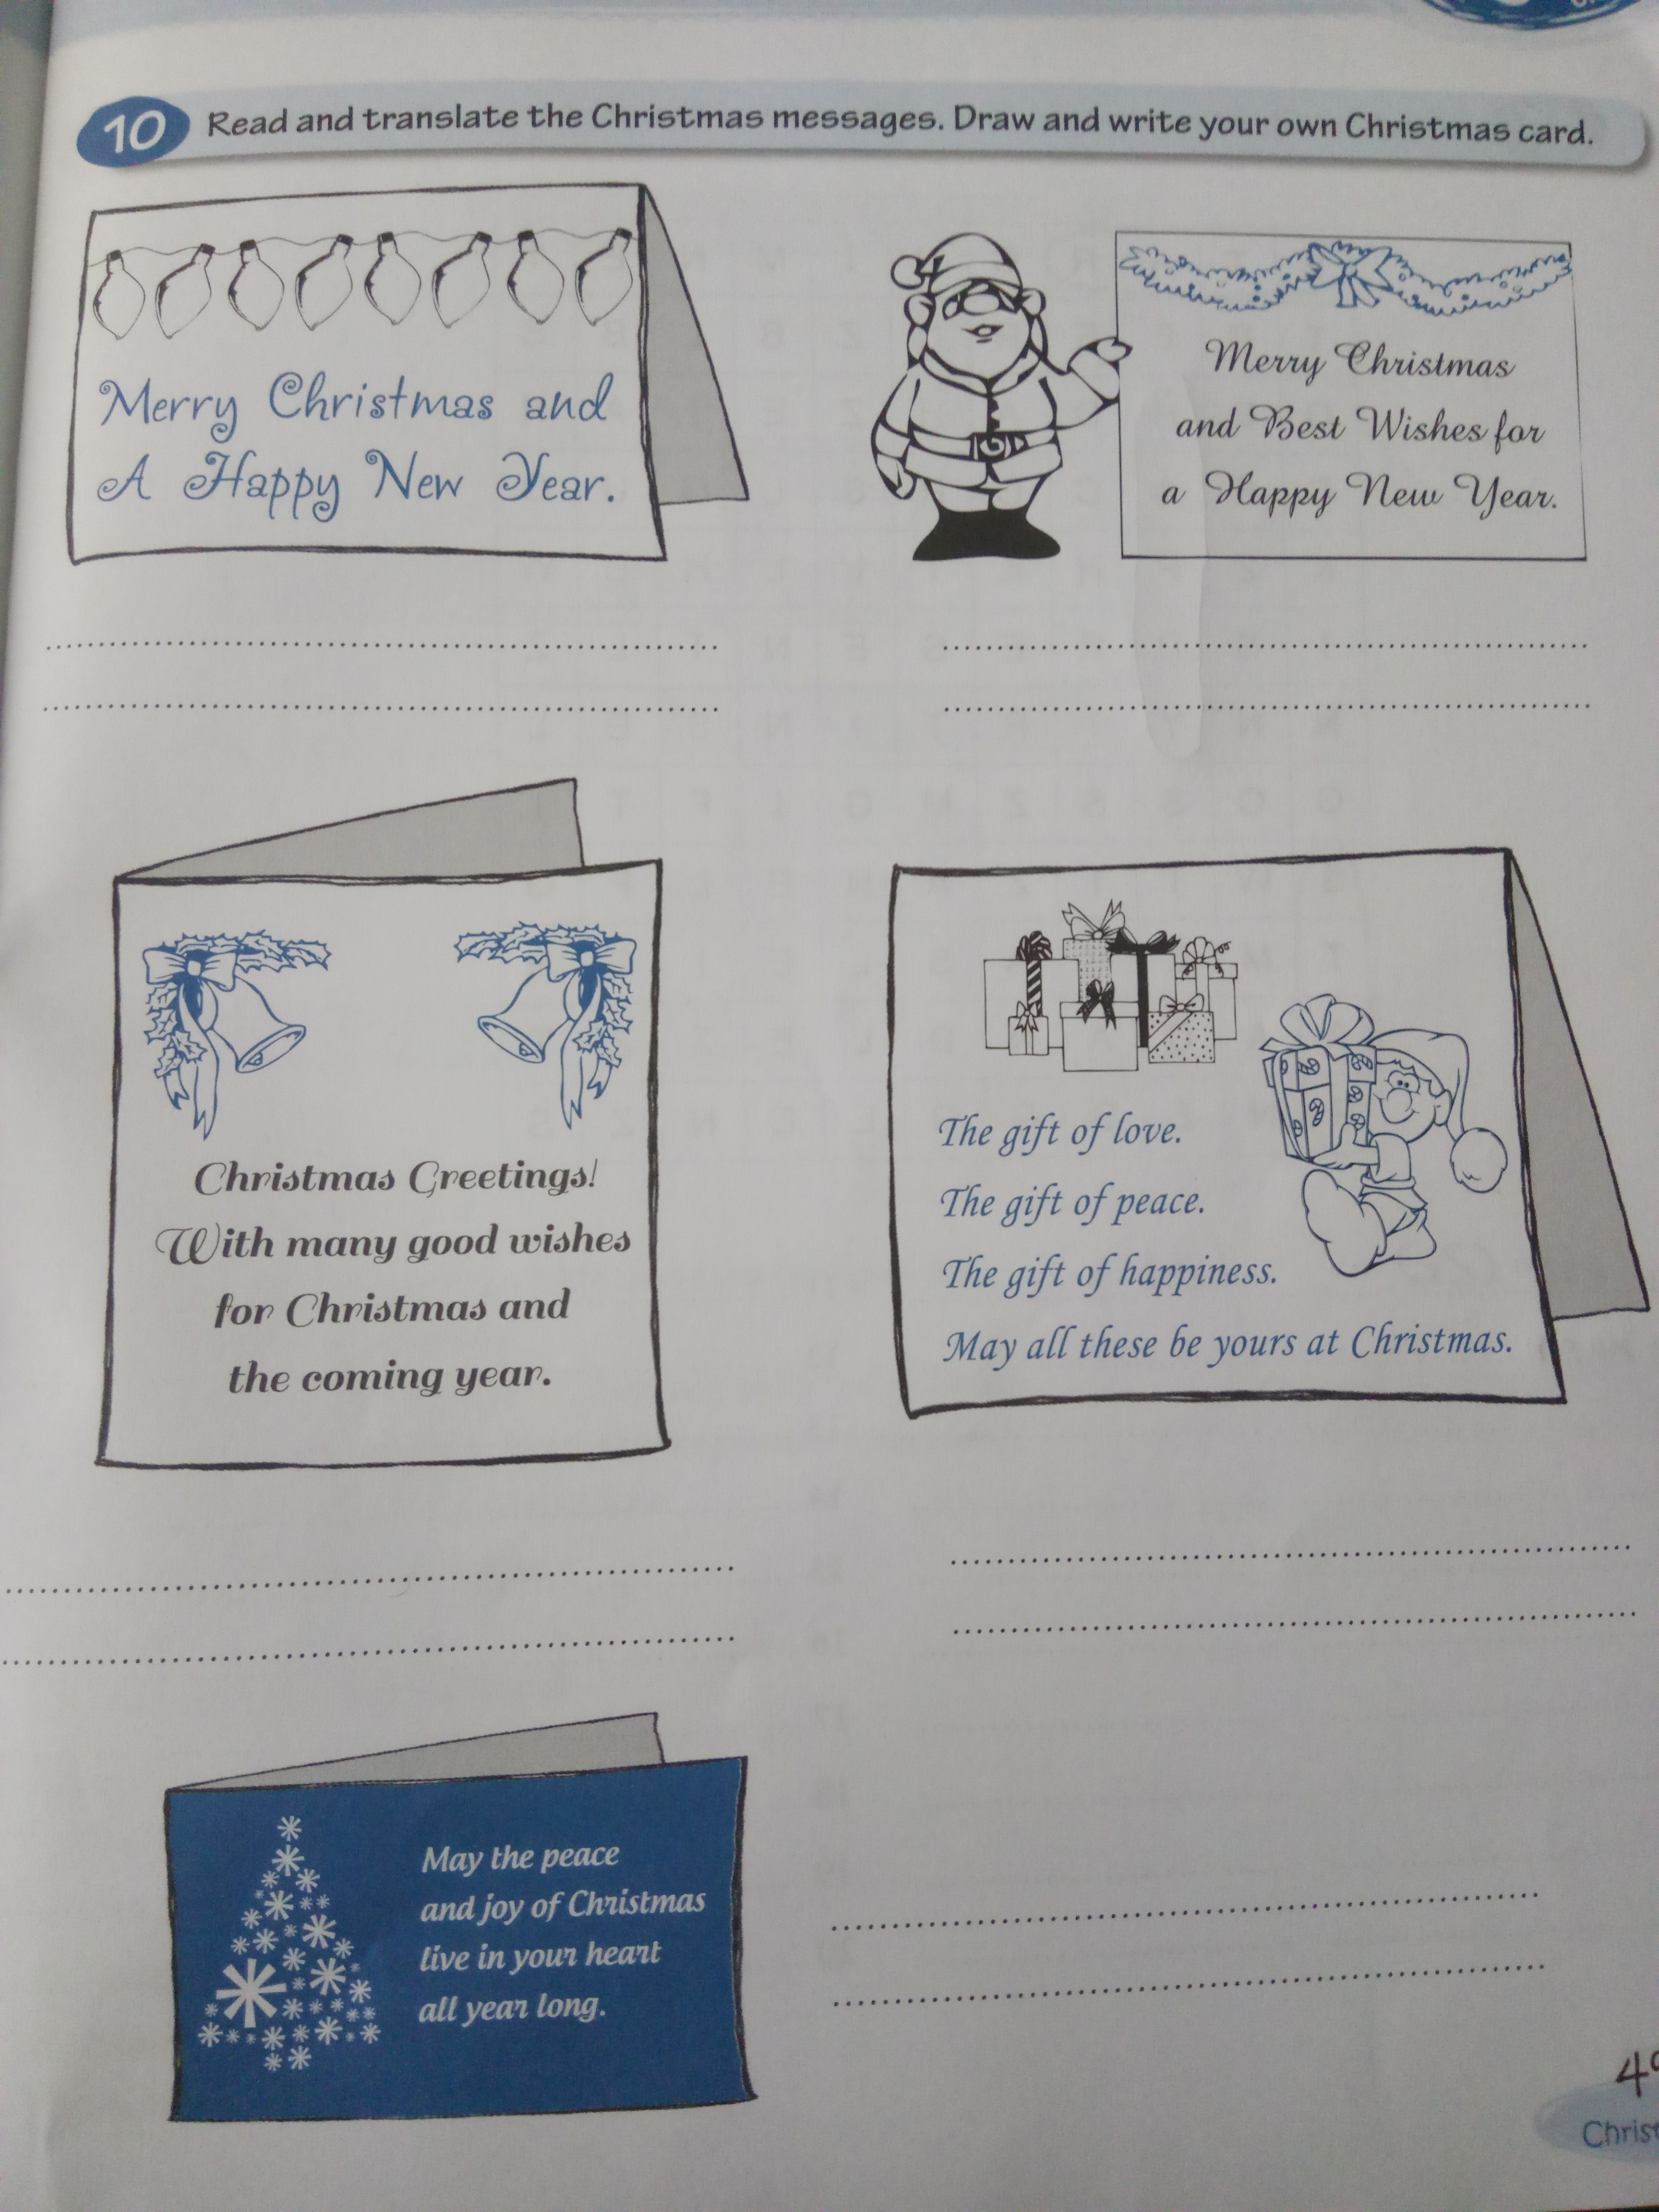 10 Read and translate the Christmas messages. Draw and write your own Christmas card.
Merry Christmas and
A Happy New Year.
Merry Christmas
and Best Wishes for
a Happy New Year.
Christmas Greetings!
With many good wishes
for Christmas and
the coming year.
The gift of love.
The gift of peace.
The gift of happiness.
May all these be yours at Christmas.
May the peace
and joy of Christmas
live in your heart
all year long.